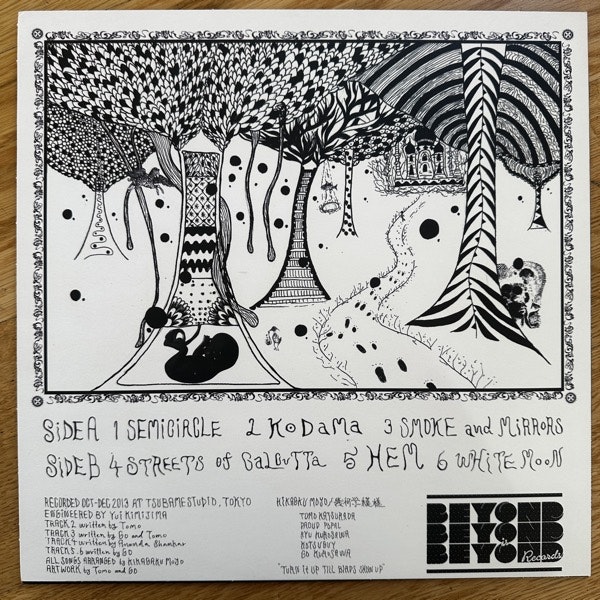 SIDE A 1 SEMICIRCLE 2 KODAMA 3 SMOKE and MIRRORS
SIDE B 4 STREETS of CALCUTTA 5 HEM 6 WHITE MOON
RECORDED OCT-DEC 2013 AT TSUBAMESTUDIO, TOKYO
ENGINEERED BY YUI KIMIJIMA
TRACK 2 written by Tomo
TRACK 3 written by GO and Tomo
TRACK 4 written by Ananda Shankar
TRACK 5.6 written by GO
ALL SONGS ARRANGED by KIKAGAKU MOYO
ARTWORK by Tomo and GO
KIKAGAKU MOYO/幾何学模様
TOMO KATSURADA
DAOUD POPAL
RYU KUROSAWA
KOTSUGUY
GO KUROSAWA
"TURN IT UP TILL BIRDS SHOW UP"
BEYOND
BEYOND
is
BEYOND
Records